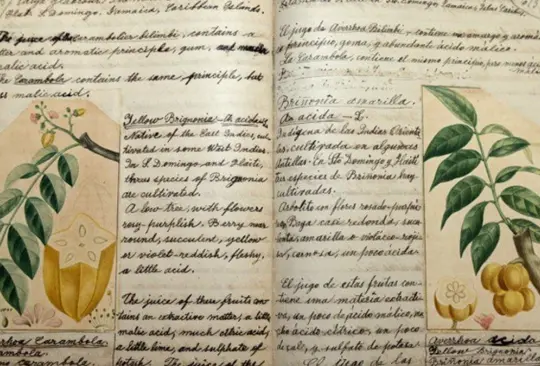 Hayti & Domingo, Jamaica, Caribbean Islands.
The juice of Carambolica bilimbi, contains a
and aromatic principle, gum, and
malic acid.
Carambola contains the same principle, but
malic acid.
Yellow Brignonia - An acida
Native of the East Indies, cul
tivated in some West Indies.
In S. Domingo and Haiti,
three species of Brignonia
are cultivated.
A low tree, with flowers
rosy-purplish. Berry
round, succulent, yellow
or violet-reddish, fleshy,
a little acid.
The juice of these fruits con
tains an extractive matter, a little
malic acid, much citric acid,
a little lime, and sulphate of
potash. The juice of the
Averrhoa Carambola
Carambola
Sto Domingo, Jamaica, Islas Caribes
El jugo de Averrhoa Bilimbi, contiene
principio, goma, abundante ácido málico.
La Carambola, contiene el mismo principio, pero
málico.
Briñonia amarilla.
An acida - L.
Indígena de las Indias Oriente
les, cultivada en algunas
Antillas - En Sto Domingo y Haití
especies de Briñonia hay
cultivadas.
Arbolito con flores rosado-purpú
Baya casi redonda, sucu
lenta, amarilla o violáceo-roji
carnosa, un poco ácida.
El jugo de estas frutas con
tiene una materia extracti
va, un poco de ácido málico, mu
cho ácido cítrico, un poco
de cal, y sulfato de potasa.
El jugo de las
Averrhoa acida
Yellow Brignonia
Briñonia amarilla